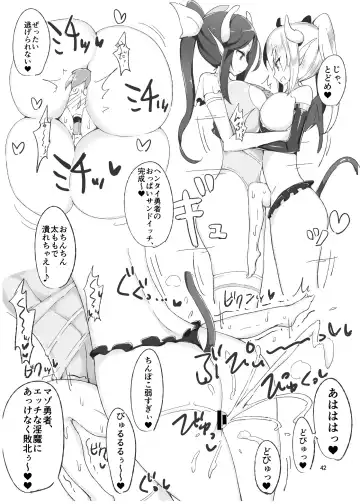 ぜったい
逃げられない♥
じゃ、
とどめ♥
ミチッ
ミチッ
ミチッ
ミチッ
ヘンタイ勇者の
おっぱいサンドイッチ、
完成～♥
ギュッ
おちんちん
太ももで
潰れちゃえー♪
ビクンッ
ビクンッ
ちんぽこ弱すぎぃ
びゅるるるぅ～
あはははっ
どびゅっ
どびゅっ
マゾ勇者、
エッチな淫魔に
あっけなく敗北ぅ～
42